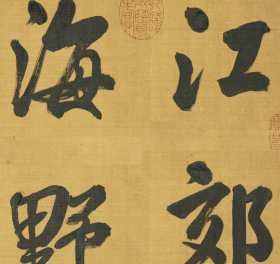 江郊
海野